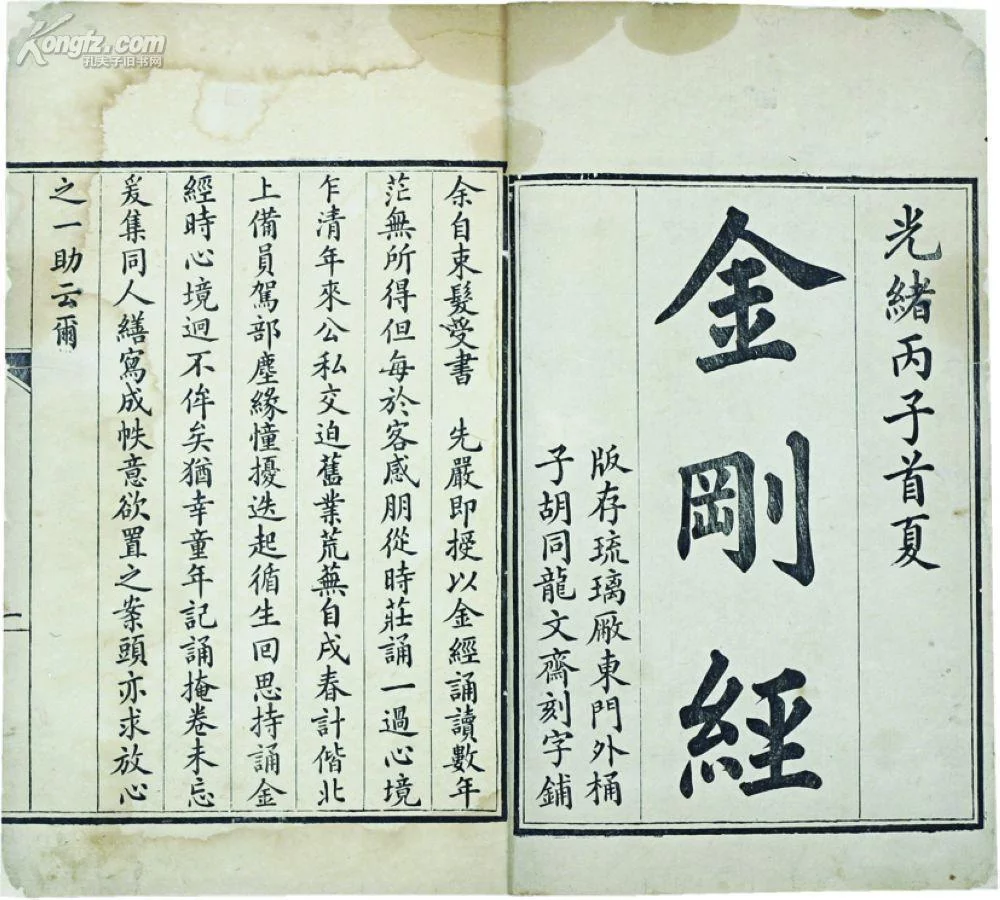 光緒丙子首夏
金剛經
版存琉璃厰東門外桶
子胡同龍文齋刻字鋪
余自束髮受書　先嚴即授以金經誦讀數年
茫無所得但每於客感朋從時莊誦一過心境
乍清年來公私交迫舊業荒蕪自戌春計偕北
上備員駕部塵緣憧擾迭起循生回思持誦金
經時心境迥不侔矣猶幸童年記誦掩卷未忘
爰集同人繕寫成帙意欲置之案頭亦求放心
之一助云爾
二
Kongfz.com
孔夫子旧书网